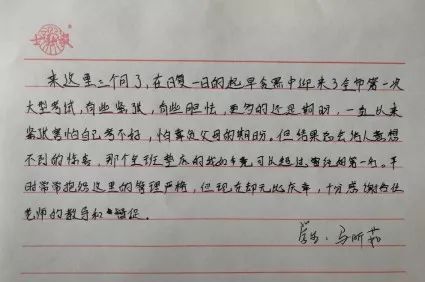 来这里三个月了,在日复一日的起早贪黑中迎来了全市第一次
大型考试,有些紧张,有些胆怯,更多的还是期盼,一直以来
紧张害怕自己考不好,怕辜负父母的期盼。但结果总会给人意想
不到的惊喜,那个全班垫底的我如今竟可以超过曾经的第一了。平
时常常抱怨这里的管理严格,但现在却无比庆幸,十分感谢各位
老师的教导和督促。
学生:马昕茹